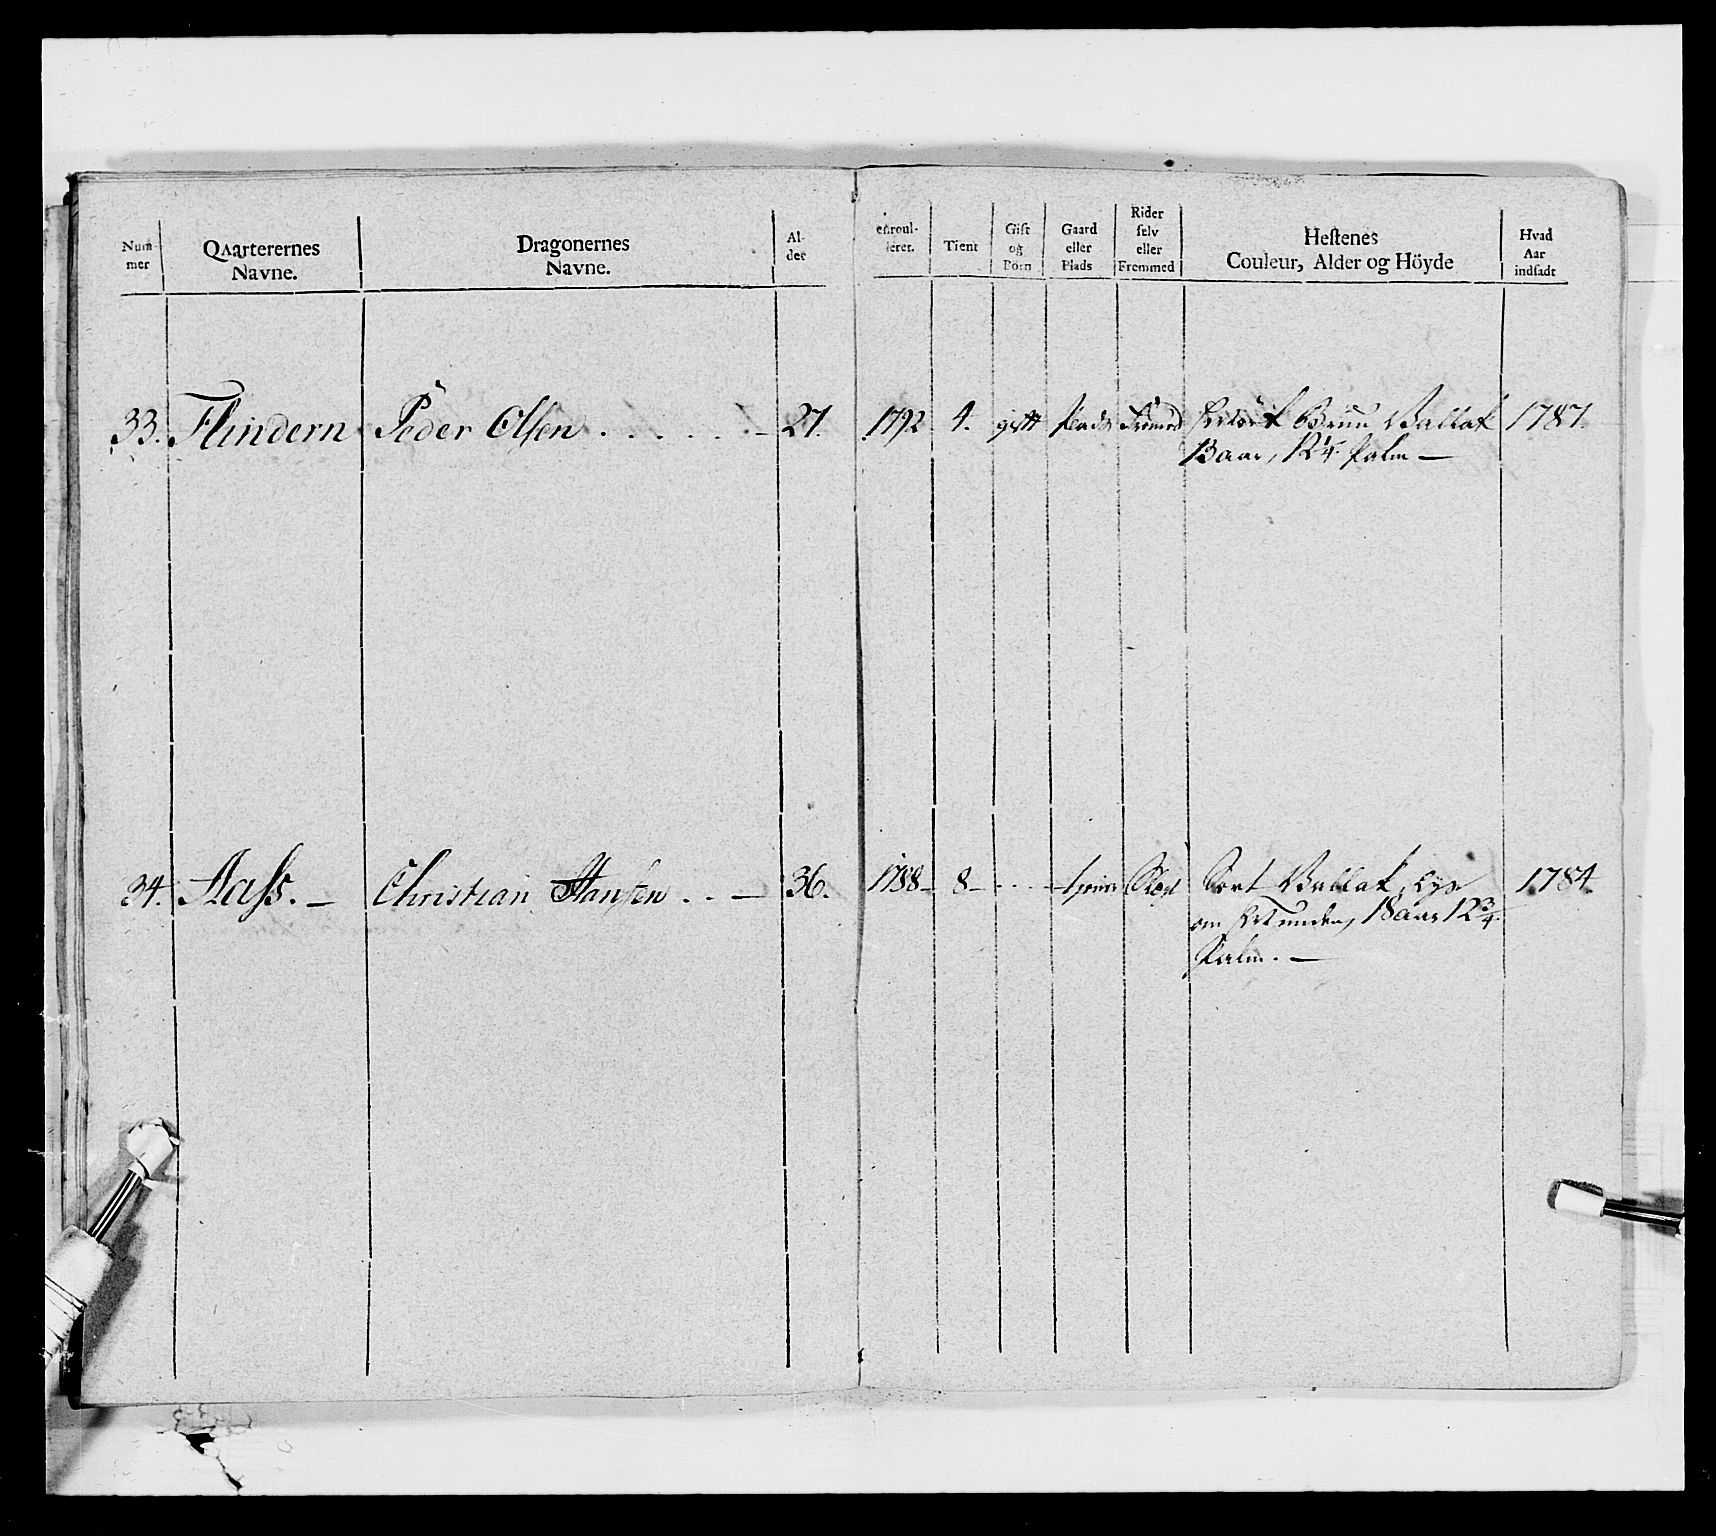 Num-
mer
Qvarterernes
Navne.
Dragonernes
Navne.
Al-
der
enroul-
lerer.
Tient
Gift
og
Börn
Gaard
eller
Plads
Rider
selv
eller
Fremmed
Hestenes
Couleur, Alder og Höyde
Hvad
Aar
indsadt
33. Flindern Peder Olsen . . . . . . - 27. 1792 4. gift Plads Fremed Bruun Vallak 1787.
13 aar, 12 1/4 Palm —
34. Aass. — Christian Hansen . . — 36. 1788 - 8 - . . . - Sort Vallak, lys 1784.
om Munden, 18 aar 12 3/4
Palm. —